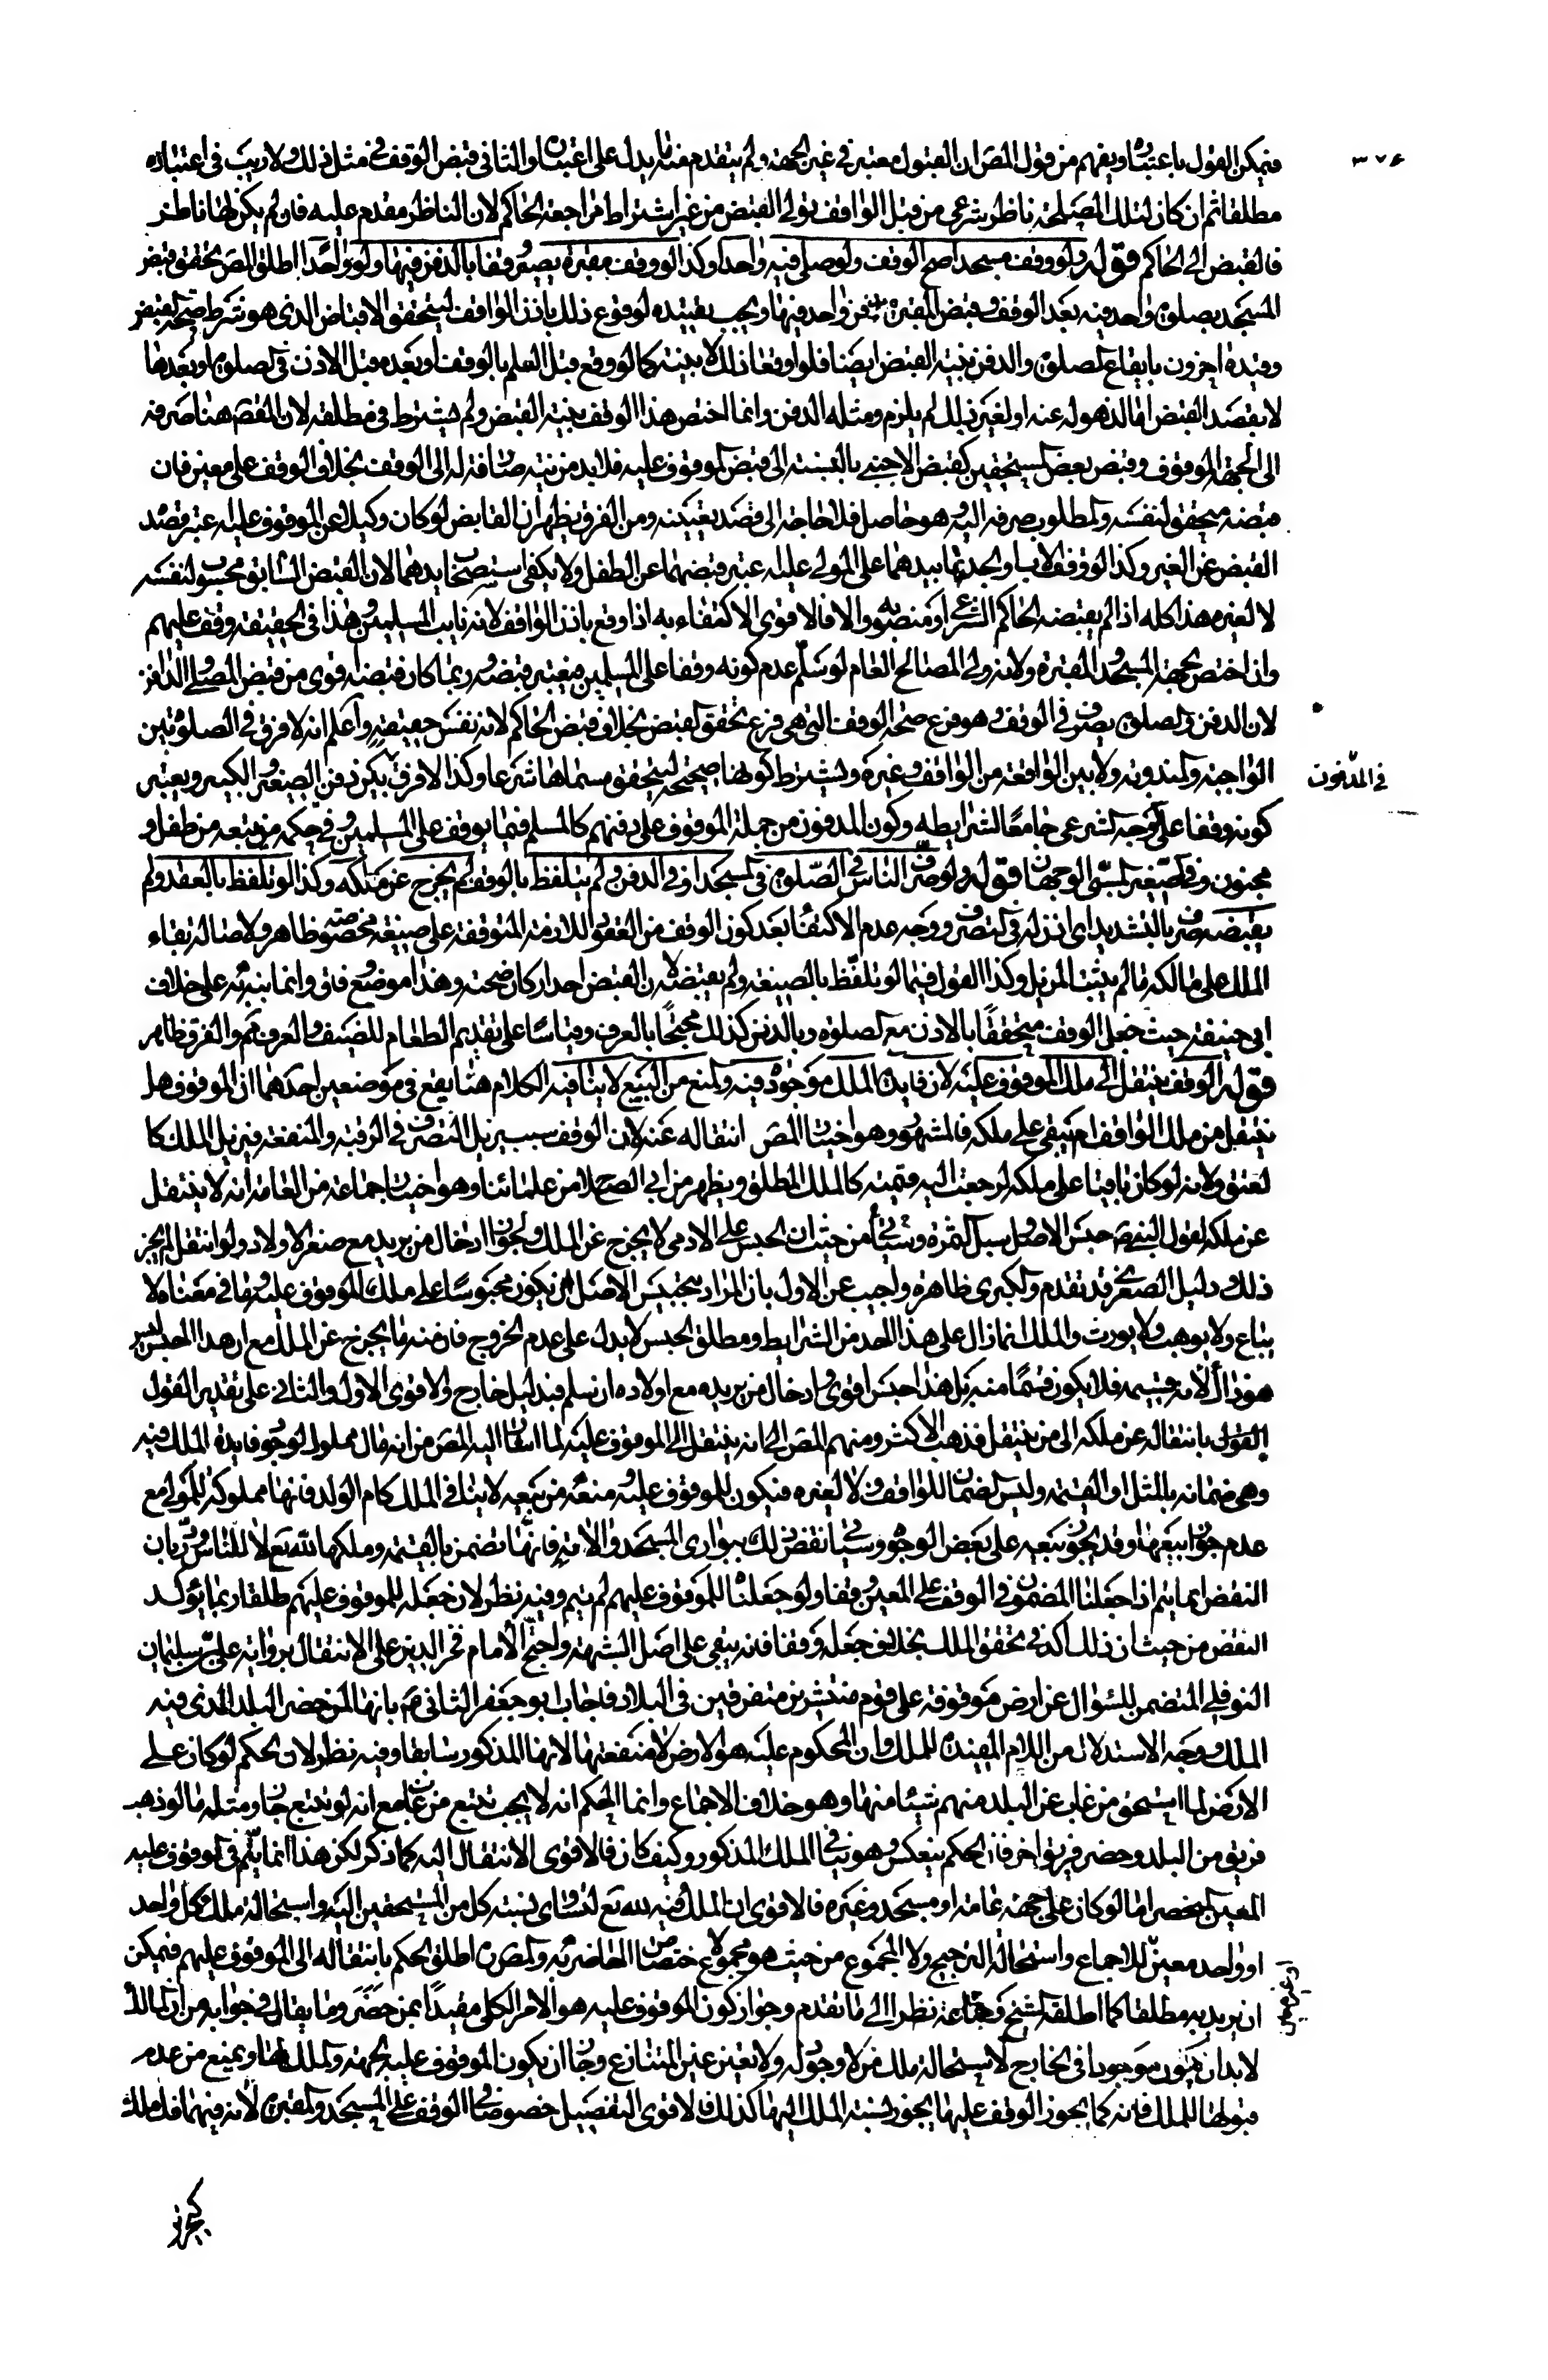 ٣٧٤
فيمكن القول باعتباره ويفهم من قول المص ان القبول معتبر في غير الجهة ولم يتقدم منه ما يدل على اعتباره والثاني قبض الوقف في مثل ذلك ولا ريب في اعتباره
مطلقا ثم ان كان لتلك المصلحة ناظر شرعي من قبل الواقف تولى القبض من غير اشتراط مراجعة الحاكم لان الناظر مقدم عليه فان لم يكن لها ناظر
فالقبض الى الحاكم قوله ولو وقف مسجدا صح الوقف ولو صلى فيه واحد وكذا لو وقف مقبرة يصير وقفا بالدفن فيها ولو واحدا اطلق المص تحقق قبض
المسجد بصلوة واحد فيه بعد الوقف وقبض المقبرة بدفن واحد فيها ويجب تقييده بوقوع ذلك باذن الواقف ليتحقق الاقباض الذي هو شرط صحة القبض
وقيده اخرون بايقاع الصلوة والدفن بنية القبض ايضا فلو اوقعا ذلك لا بنيته كما لو وقع قبل العلم بالوقف او بعده قبل الاذن في الصلوة او بعدهما
لا بقصد القبض اما لذهوله عنه او لغير ذلك لم يلزم ومثله الدفن وانما اختص هذا الوقف بنية القبض ولم يشترط في مطلقه لان المقصود هنا صرفه
الى الجهة الموقوف وقبض بعض المستحقين كقبض الاجنبي بالنسبة الى قبض الموقوف عليه فلا بد من نية صارفة له الى الوقف بخلاف الوقف على معين فان
قبضه متحقق لنفسه والمطلوب صرفه اليه وهو حاصل فلا حاجة الى قصد يعينه ومن الفرق يظهر ان القابض لو كان وكيلا عن الموقوف عليه اعتبر قصد
القبض عن الغير وكذا لو وقف الاب او الجد ما بيدهما على المولى عليه اعتبر قبضهما عن الطفل ولا يكفي استصحاب يدهما لان القبض السابق محسوب لنفسه
لا لغيره هذا كله اذا لم يقبضه الحاكم الشرعي او منصوبه والا فالاقوى الاكتفاء به اذا وقع باذن الواقف لانه نايب المسلمين وهذا في الحقيقة وقف عليهم
وان اختص بجهة المسجد والمقبرة ولانه ولي المصالح العام لو سلم عدم كونه وقفا على المسلمين فيعتبر قبضه وربما كان قبضه اقوى من قبض المصلي والدافن
لان الدفن والصلوة تصرف في الوقف وهو فرع صحة الوقف التي هي فرع تحقق القبض بخلاف قبض الحاكم لانه نفس حقيقته واعلم انه لا فرق في الصلوة بين
الواجبة والمندوبة ولا بين الواقعة من الواقف وغيره ويشترط كونها صحيحة ليتحقق مسماها شرعا وكذا لا فرق بين كون دفن الصغير والكبير ويعتبر
في المدفون
كونه وقفا على الوجه الشرعي جامعا لشرايطه وكون المدفون من جملة الموقوف على دفنهم كالمسلم فيما يوقف على المسلمين وفي حكمه من يتبعه من طفل و
مجنون وفي الصغير المسبي الوجهان قوله ولو صرف الناس في الصلوة في المسجد او في الدفن ولم يتلفظ بالوقف لم يخرج عن ملكه وكذا لو تلفظ بالعقد ولم
يقبضه صرف بالتشديد اي اذن له في التصرف ووجه عدم الاكتفاء بعد كون الوقف من العقود اللازمة المتوقفة على صيغة مخصوصة ظاهر ولاصالة بقاء
الملك على مالكه ما لم يثبت المزيل وكذا القول فيما لو تلفظ بالصيغة ولم يقبضه لان القبض احد اركان صحته وهذا موضع وفاق وانما نبه به على خلاف
ابي حنيفة حيث جعل الوقف متحققا بالاذن مع الصلوة وبالدفن كذلك محتجا بالعرف وقياسا على تقديم الطعام للضيف والعرف ثم والفرق ظاهر
قوله الوقف ينتقل الى ملك الموقوف عليه لان فايدة الملك موجود فيه والمنع من البيع لا ينافيه الكلام هنا يقع في موضعين احدهما ان الموقوف هل
ينتقل من ملك الواقف ام يبقى على ملكه فالمشهور وهو اختيار المص انتقاله عنه لان الوقف سبب يزيل التصرف في الرقبة والمنفعة فيزيل الملك كا
لعتق ولانه لو كان باقيا على ملكه لرجعت اليه قيمته كالملك المطلق ويظهر من ابي الصلاح من علمائنا وهو اختيار جماعة من العامة انه لا ينتقل
عن ملكه لقول النبي ص حبس الاصل وسبل الثمرة وسيأتي من حيث ان الحبس على الادمي لا يخرج عن الملك ولجواز ادخال من يريد مع صغر الاولاد ولو انتقل لم يجز
ذلك ودليل الصغرى قد تقدم والكبرى ظاهرة واجيب عن الاول بان المراد بتحبيس الاصل ان يكون محبوسا على ملك الموقوف عليه وما في معناه لا
يباع ولا يوهب ولا يورث والملك انما زال على هذا الحد من الشرايط ومطلق الحبس لا يدل على عدم الخروج فان منه ما يخرج عن الملك مع ان هذا الحبس ليس
هو ذاك لانه قسيمه فلا يكون قسما منه بل هذا حبس اقوى وادخال من يريده مع اولاده ان سلم فبدليل خارج والاقوى الاول والثاني على تقدير القول
القول بانتقاله عن ملكه الى من ينتقل فذهب الاكثر ومنهم المص الى انه ينتقل الى الموقوف عليه لما اشار اليه المص من انه مال مملوك لوجود فايدة الملك فيه
وهي ضمانه بالمثل او القيمة وليس الضمان للواقف ولا لغيره فيكون للموقوف عليه ومنعه من بيعه لا ينافي الملك كام الولد فانها مملوكة للمولى مع
عدم جواز بيعها وقد يجوز بيعه على بعض الوجوه وسيأتي نقض ذلك ببواري المسجد والاته فانها تضمن بالقيمة وملكها لله تع لا للناس ورد بان
النقض انما يتم اذا جعلنا المضمون في الوقف على المعين وقفا ولو جعلناه للموقوف عليهم لم يتم وفيه نظر لان جعله للموقوف عليهم طلقا ربما يؤكد
النقض من حيث ان ذلك اكد في تحقق الملك بخلاف جعله وقفا فانه يبقى على اصل الشبهة واحتج الامام فخر الدين على الانتقال برواية علي بن سليمان
النوفلي المتضمن للسؤال عن ارض موقوفة على قوم منتشرين متفرقين في البلاد فاجاب ابو جعفر الثاني ع بانها لمن حضر البلد الذي فيه
الملك ووجه الاستدلال من اللام المفيدة للملك وان المحكوم عليه هو الارض لا منفعتها لانها المذكور سابقا وفيه نظر لان الحكم لو كان على
الارض لما استحق من غاب عن البلد منهم شيئا منها وهو خلاف الاجماع وانما الحكم انه لا يجب تتبع من غاب مع انه لو تتبع جاز ومثله ما لو ذهب
فريق من البلد وحضر فريق اخر فان الحكم ينعكس وهو ينافي الملك المذكور وكيف كان فالاقوى الانتقال اليه كما ذكر لكن هذا انما يتم في الموقوف عليه
المعين المنحصر اما لو كان على جهة عامة او مسجد وغيره فالاقوى ان الملك فيه لله تع لتساوي نسبة كل من المستحقين اليه واستحالة ملك كل واحد
او واحد معين للاجماع واستحالة الترجيح ولا المجموع من حيث هو مجموع لاختصاص الحاضر به والمص ره اطلق الحكم بانتقاله الى الموقوف عليهم فيمكن
ان يريد به مطلقا كما اطلقه الشيخ وجماعة نظرا الى ما تقدم وجواز كون الموقوف عليه هو الامر الكلي مقيدا بمن حضر وما يقال في جوابه من ان المالك
لا بد ان يكون موجودا في الخارج لاستحالة ملك من لا وجود له ولا تعين عين المتنازع وجاز ان يكون الموقوف عليه الجهة والملك لها ويمنع من عدم
قبولها للملك فانه كما يجوز الوقف عليها يجوز نسبة الملك اليها كذلك فالاقوى التفصيل خصوصا في الوقف على المسجد والمقبرة لانه فيهما فك ملك